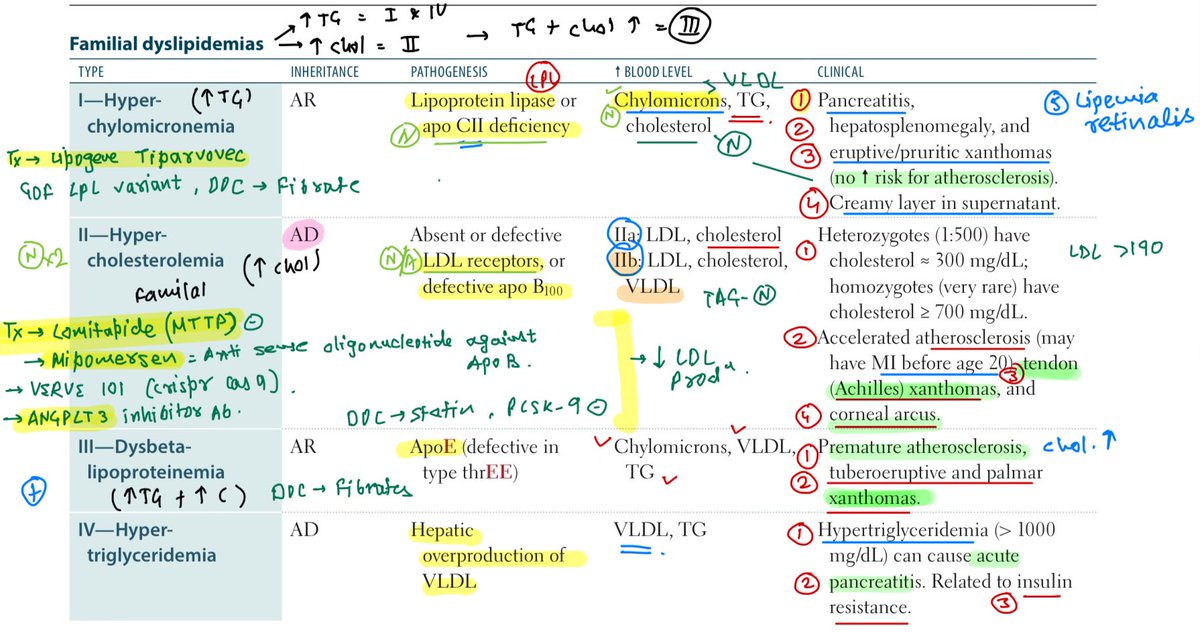 ↑ TG = I & IV
Familial dyslipidemias → ↑ chol = II → TG + chol ↑ = III
TYPE INHERITANCE PATHOGENESIS ↑ BLOOD LEVEL CLINICAL
LPL > VLDL
I—Hyper-
chylomicronemia
(↑TG)
Tx → Lipogene Tiparvovec
GOF LPL variant, DOC → Fibrate
AR
Lipoprotein lipase or
N apo CII deficiency
Chylomicrons, TG,
N cholesterol N
1 Pancreatitis,
2 hepatosplenomegaly, and
3 eruptive/pruritic xanthomas
(no ↑ risk for atherosclerosis).
4 Creamy layer in supernatant.
5 Lipemia
retinalis
II—Hyper-
cholesterolemia
N x2
(↑ chol)
Familal
Tx → Lomitapide (MTTP) ⊖
→ Mipomersen = Anti sense oligonucleotide against
Apo B.
→ VERVE 101 (crispr cas 9).
→ ANGPLT3 inhibitor Ab.
DOC → statin, PCSK-9 ⊖
AD
Absent or defective
LDL receptors, or
defective apo B100
IIa: LDL, cholesterol
IIb: LDL, cholesterol,
VLDL
TAG- N
→ ↓ LDL
Prodn.
1 Heterozygotes (1:500) have
cholesterol ≈ 300 mg/dL;
homozygotes (very rare) have
cholesterol ≥ 700 mg/dL.
LDL >190
2 Accelerated atherosclerosis (may
have MI before age 20), 3 tendon
(Achilles) xanthomas, and
4 corneal arcus.
III—Dysbeta-
lipoproteinemia
(↑TG + ↑ C)
+
DOC → Fibrates
AR
ApoE (defective in
type thrEE)
Chylomicrons, VLDL,
TG
1 Premature atherosclerosis,
2 tuberoeruptive and palmar
xanthomas.
chol. ↑
IV—Hyper-
triglyceridemia
AD
Hepatic
overproduction of
VLDL
VLDL, TG
1 Hypertriglyceridemia (> 1000
mg/dL) can cause acute
2 pancreatitis. Related to insulin
3 resistance.